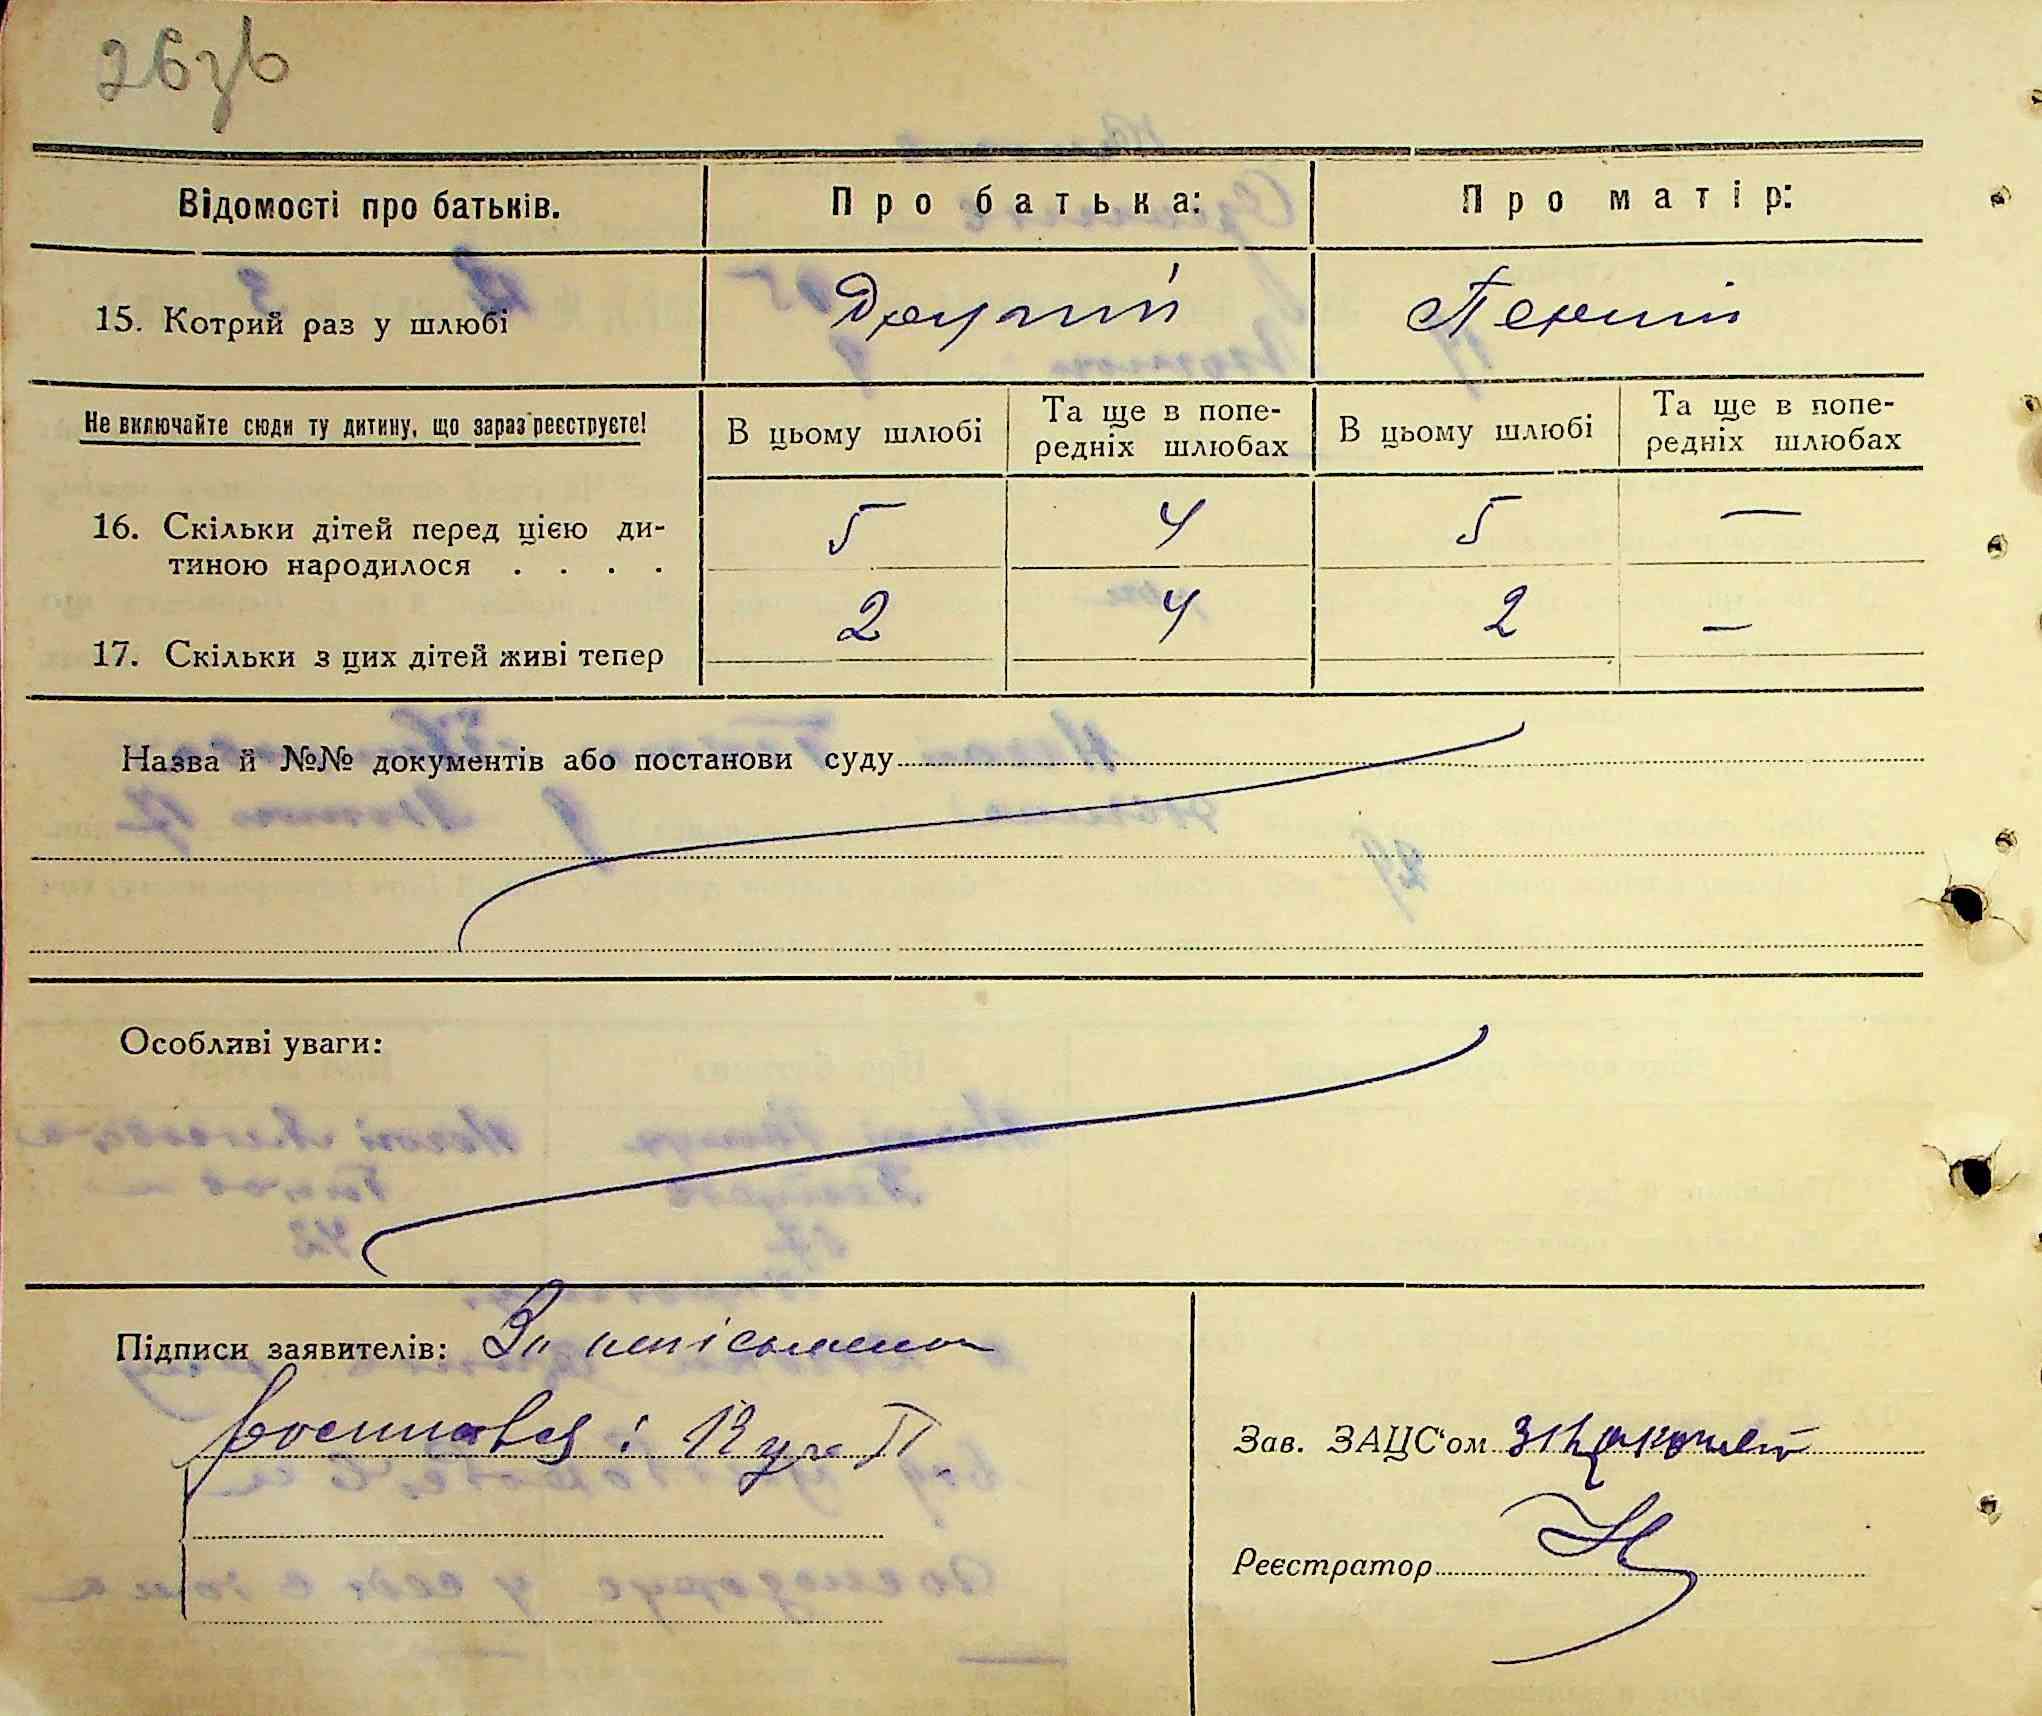 26зв
Відомості про батьків.
Про батька:
Про матір:
15. Котрий раз у шлюбі
Другий
Перший
Не включайте сюди ту дитину, що зараз реєструєте!
В цьому шлюбі
Та ще в попе-
редніх шлюбах
В цьому шлюбі
Та ще в попе-
редніх шлюбах
16. Скільки дітей перед цією ди-
тиною народилося . . . .
5
4
5
—
17. Скільки з цих дітей живі тепер
2
4
2
—
Назва й №№ документів або постанови суду
Особливі уваги:
Підписи заявителів: За
Зав. ЗАЦС'ом
Реєстратор